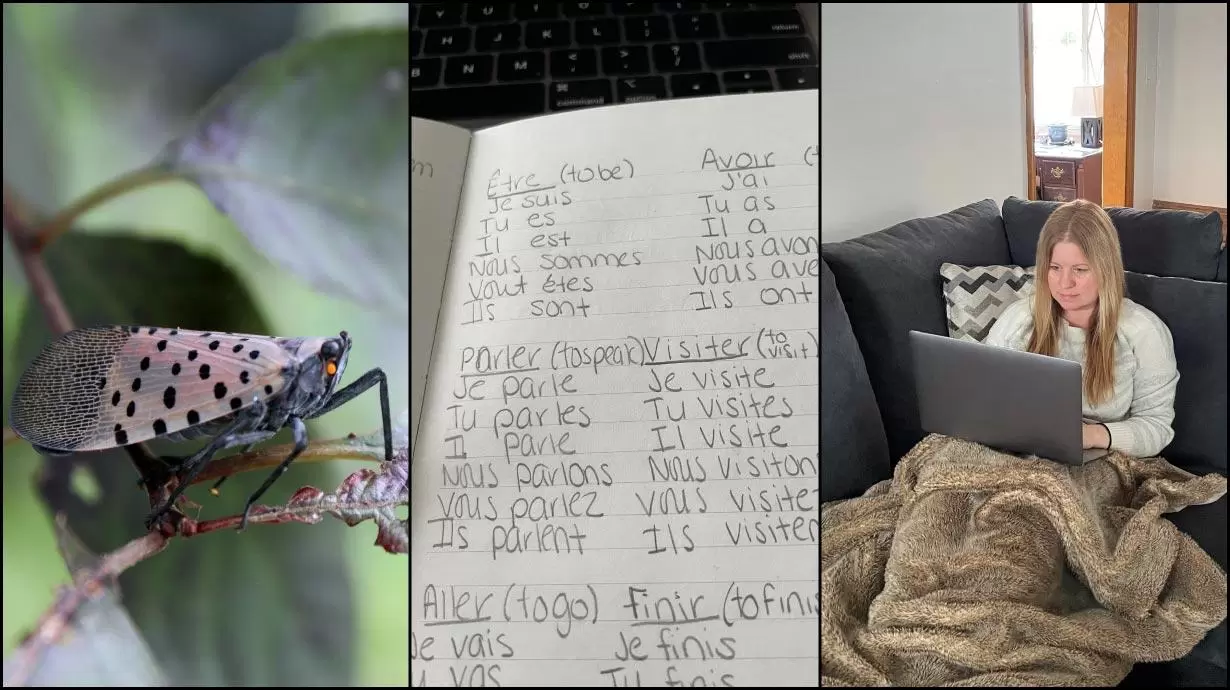 H J K L : ; return
B N M < , > . ? / shift
⌘ command option
m
Être (to be)
Je suis
Tu es
Il est
Nous sommes
Vout êtes
Ils sont
Avoir (t
J'ai
Tu as
Il a
Nous avon
Vous ave
Ils ont
Parler (to speak)
Je parle
Tu parles
Il parle
Nous parlons
Vous parlez
Ils parlent
Visiter (to visit)
Je visite
Tu visites
Il visite
Nous visiton
Vous visite
Ils visiter
Aller (to go)
Je vais
u vas
Finir (to finis
Je finis
Tu finis